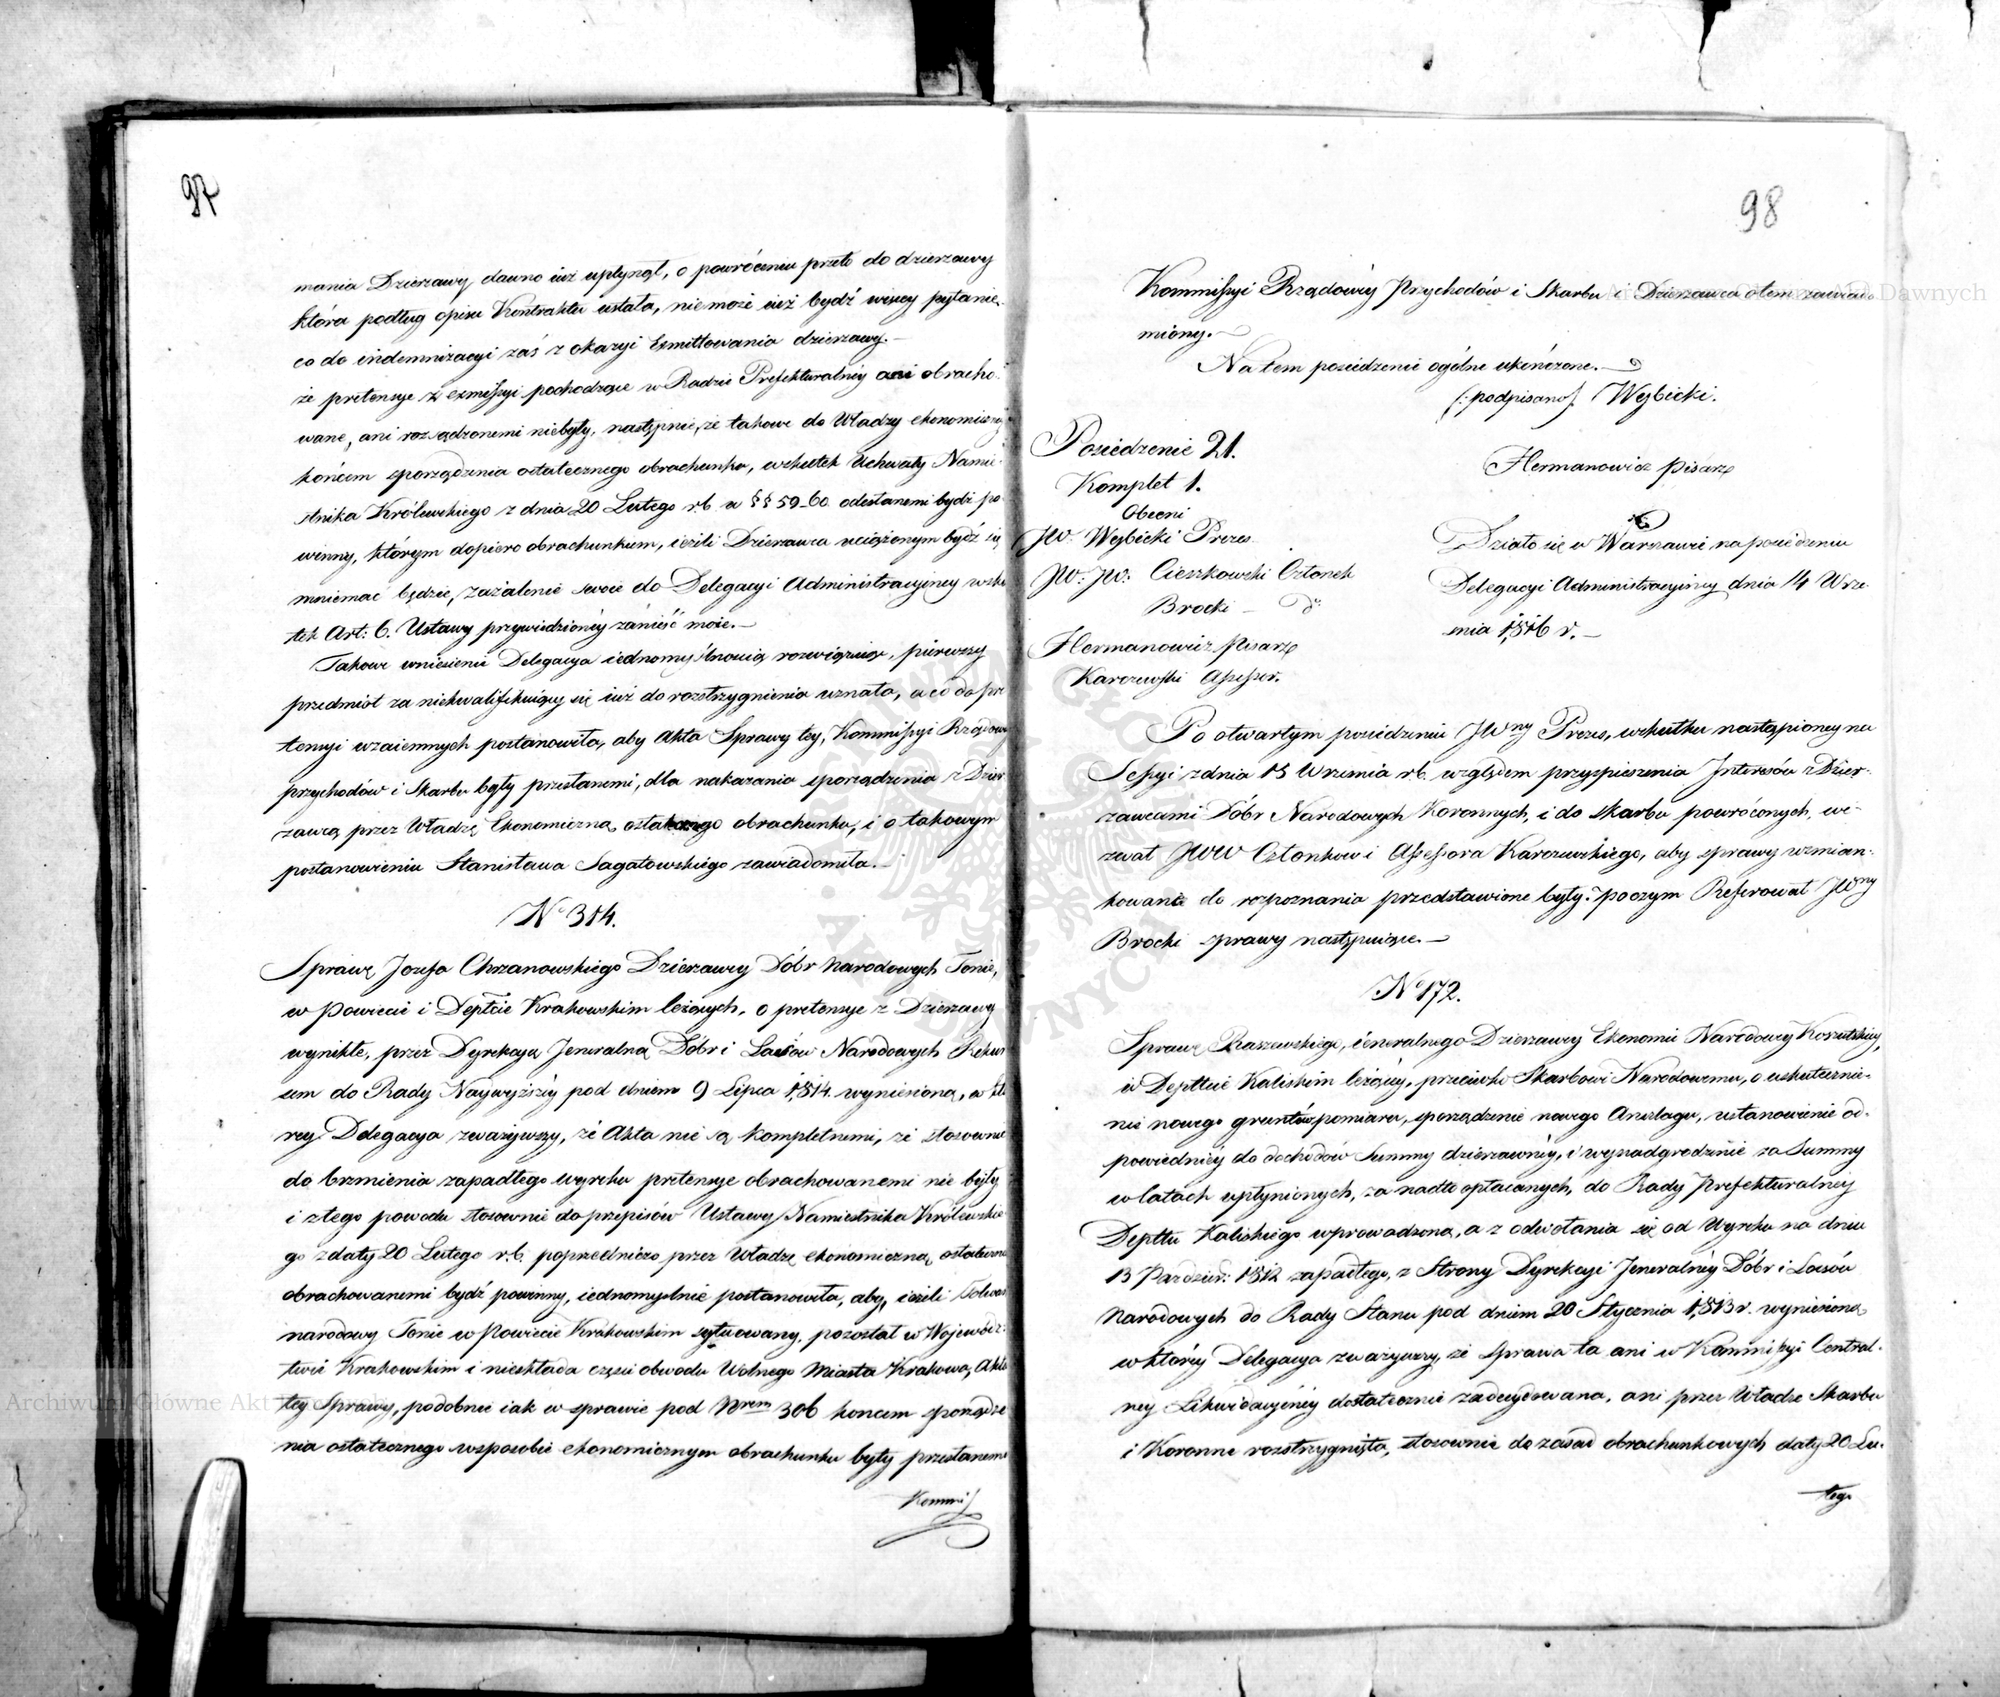 97
mania Dzierzawy dawno iuż upłynął, o powróceniu przeto do dzierzawy
która podług opisu Kontraktu ustała, nie może iuż bydź więcey pytanie,
co do indemnizacyi zaś z okazyi Exmittowania dzierzawy.—
że pretensye z exmissyi pochodzące w Radzie Prefekturalnéy ani obracho-
wane, ani rozsądzonemi niebyły, następnie, że takowe do Władzy ekonomiczney
końcem sporządzenia ostatecznego obrachunku, wskutek Uchwały Namie-
stnika Królewskiego z dnia 20 Lutego r.b. w §§ 59-60. odesłanemi bydź po-
winny, którym dopiero obrachunkiem, ieżeli Dzierzawca uciążonym bydź się
mniemać będzie, zażalenie swoie do Delegacyi Administracyiney wsku-
tek Art: 6. Ustawy przywiedzionéy zanieść może.—
Takowe wniesienie Delegacya iednomyślnością rozwiązuiąc, pierwszy
przedmiot za niekwalifikuiący się iuż do rozstrzygnienia uznała, a co do pre-
tensyi wzaiemnych postanowiła, aby Akta Sprawy tey, Kommissyi Rządowey
przychodów i Skarbu były przesłanemi, dla nakazania sporządzenia z Dzier-
zawcą przez Władzę Ekonomiczną ostatecznego obrachunku, i o takowym
postanowieniu Stanisława Sagatowskiego zawiadomiła.—
No 314.
Sprawę Jozefa Chrzanowskiego Dzierzawcy Dóbr Narodowych Tonie,
w Powiecie i Deptcie Krakowskim leżących, o pretensye z Dzierzawy
wynikłe, przez Dyrekcyą Jeneralną Dóbr i Lasów Narodowych Rekur-
sem do Rady Naywyższéy pod dniem 9 Lipca 1814. wyniesioną, w któ-
rey Delegacya zważywszy, że Akta nie są kompletnemi, że stosownie
do brzmienia zapadłego wyroku pretensye obrachowanemi nie były
i z tego powodu stosownie do przepisów Ustawy Namiestnika Królewskie-
go z daty 20 Lutego r.b. poprzedniczo przez Władzę ekonomiczną ostatecznie
obrachowanemi bydź powinny, iednomyślnie postanowiła, aby, ieżeli Folwark
narodowy Tonie w Powiecie Krakowskim sytuowany, pozostał w Wojewódz-
twie Krakowskim i nieskłada części obwodu Wolnego Miasta Krakowa, Akta
tey Sprawy, podobnie iak w sprawie pod Nrem 306 koncem sporządze-
nia ostatecznego wsposobie ekonomicznym obrachunku były przesłanemi
Kommis
98
Kommissyi Rządowéy Przychodów i Skarbu i Dzierzawca otem zawiado-
miony.—
Na tem posiedzenie ogólne ukończone.—
(: podpisano) Wybicki.
Hermanowicz Pisarz
Posiedzenie 21.
Komplet 1.
Obecni
JW. Wybicki Prezes
JW: JW: Cieszkowski Członek
Brocki — do
Hermanowicz Pisarz
Karczewski Assessor.
Działo się w Warszawie na posiedzeniu
Delegacyi Administracyiney dnia 14 Wrze-
snia 1816 r.—
Po otwartym posiedzeniu JWny Prezes, wskutku nastąpioney na
Sessyi z dnia 13 Wrzesnia r.b. względem przyspieszenia Interesów z Dzier-
zawcami Dóbr Narodowych Koronnych, i do Skarbu powróconych, we-
zwał JWW Członków i Assessora Karczewskiego, aby sprawy wzmian-
kowane do rozpoznania przedstawione były. poczym Referował JWny
Brocki sprawy następuiące.—
No 172.
Sprawę Raszewskiego, ieneralnego Dzierzawcy Ekonomii Narodowey
w Deptcie Kaliskim leżącéy, przeciwko Skarbowi Narodowemu, o uskutecznie-
nie nowego gruntów pomiaru, sporządzenie nowego Anszlagu, ustanowienie od-
powiednéy do dochodów Summy dzierzawnéy, i wynadgrodzenie za Summy
w latach upłynionych, za nadto opłacanych, do Rady Prefekturalnéy
Depttu Kaliskiego wprowadzoną, a z odwołania się od Wyroku na dniu
13 Pazdzier: 1812 zapadłego, z Strony Dyrekcyi Jeneralnéy Dóbr i Lasów
Narodowych do Rady Stanu pod dniem 20 Stycznia 1813 r. wyniesioną
w któréy Delegacya zważywszy, że Sprawa ta ani w Kommissyi Central-
ney Likwidacyinéy dostatecznie zadecydowana, ani przez Władze Skarbu
i Koronne rozstrzygnięta, stosownie do zasad obrachunkowych daty 20 Lu-
tego
Archiwum Główne Akt Dawnych